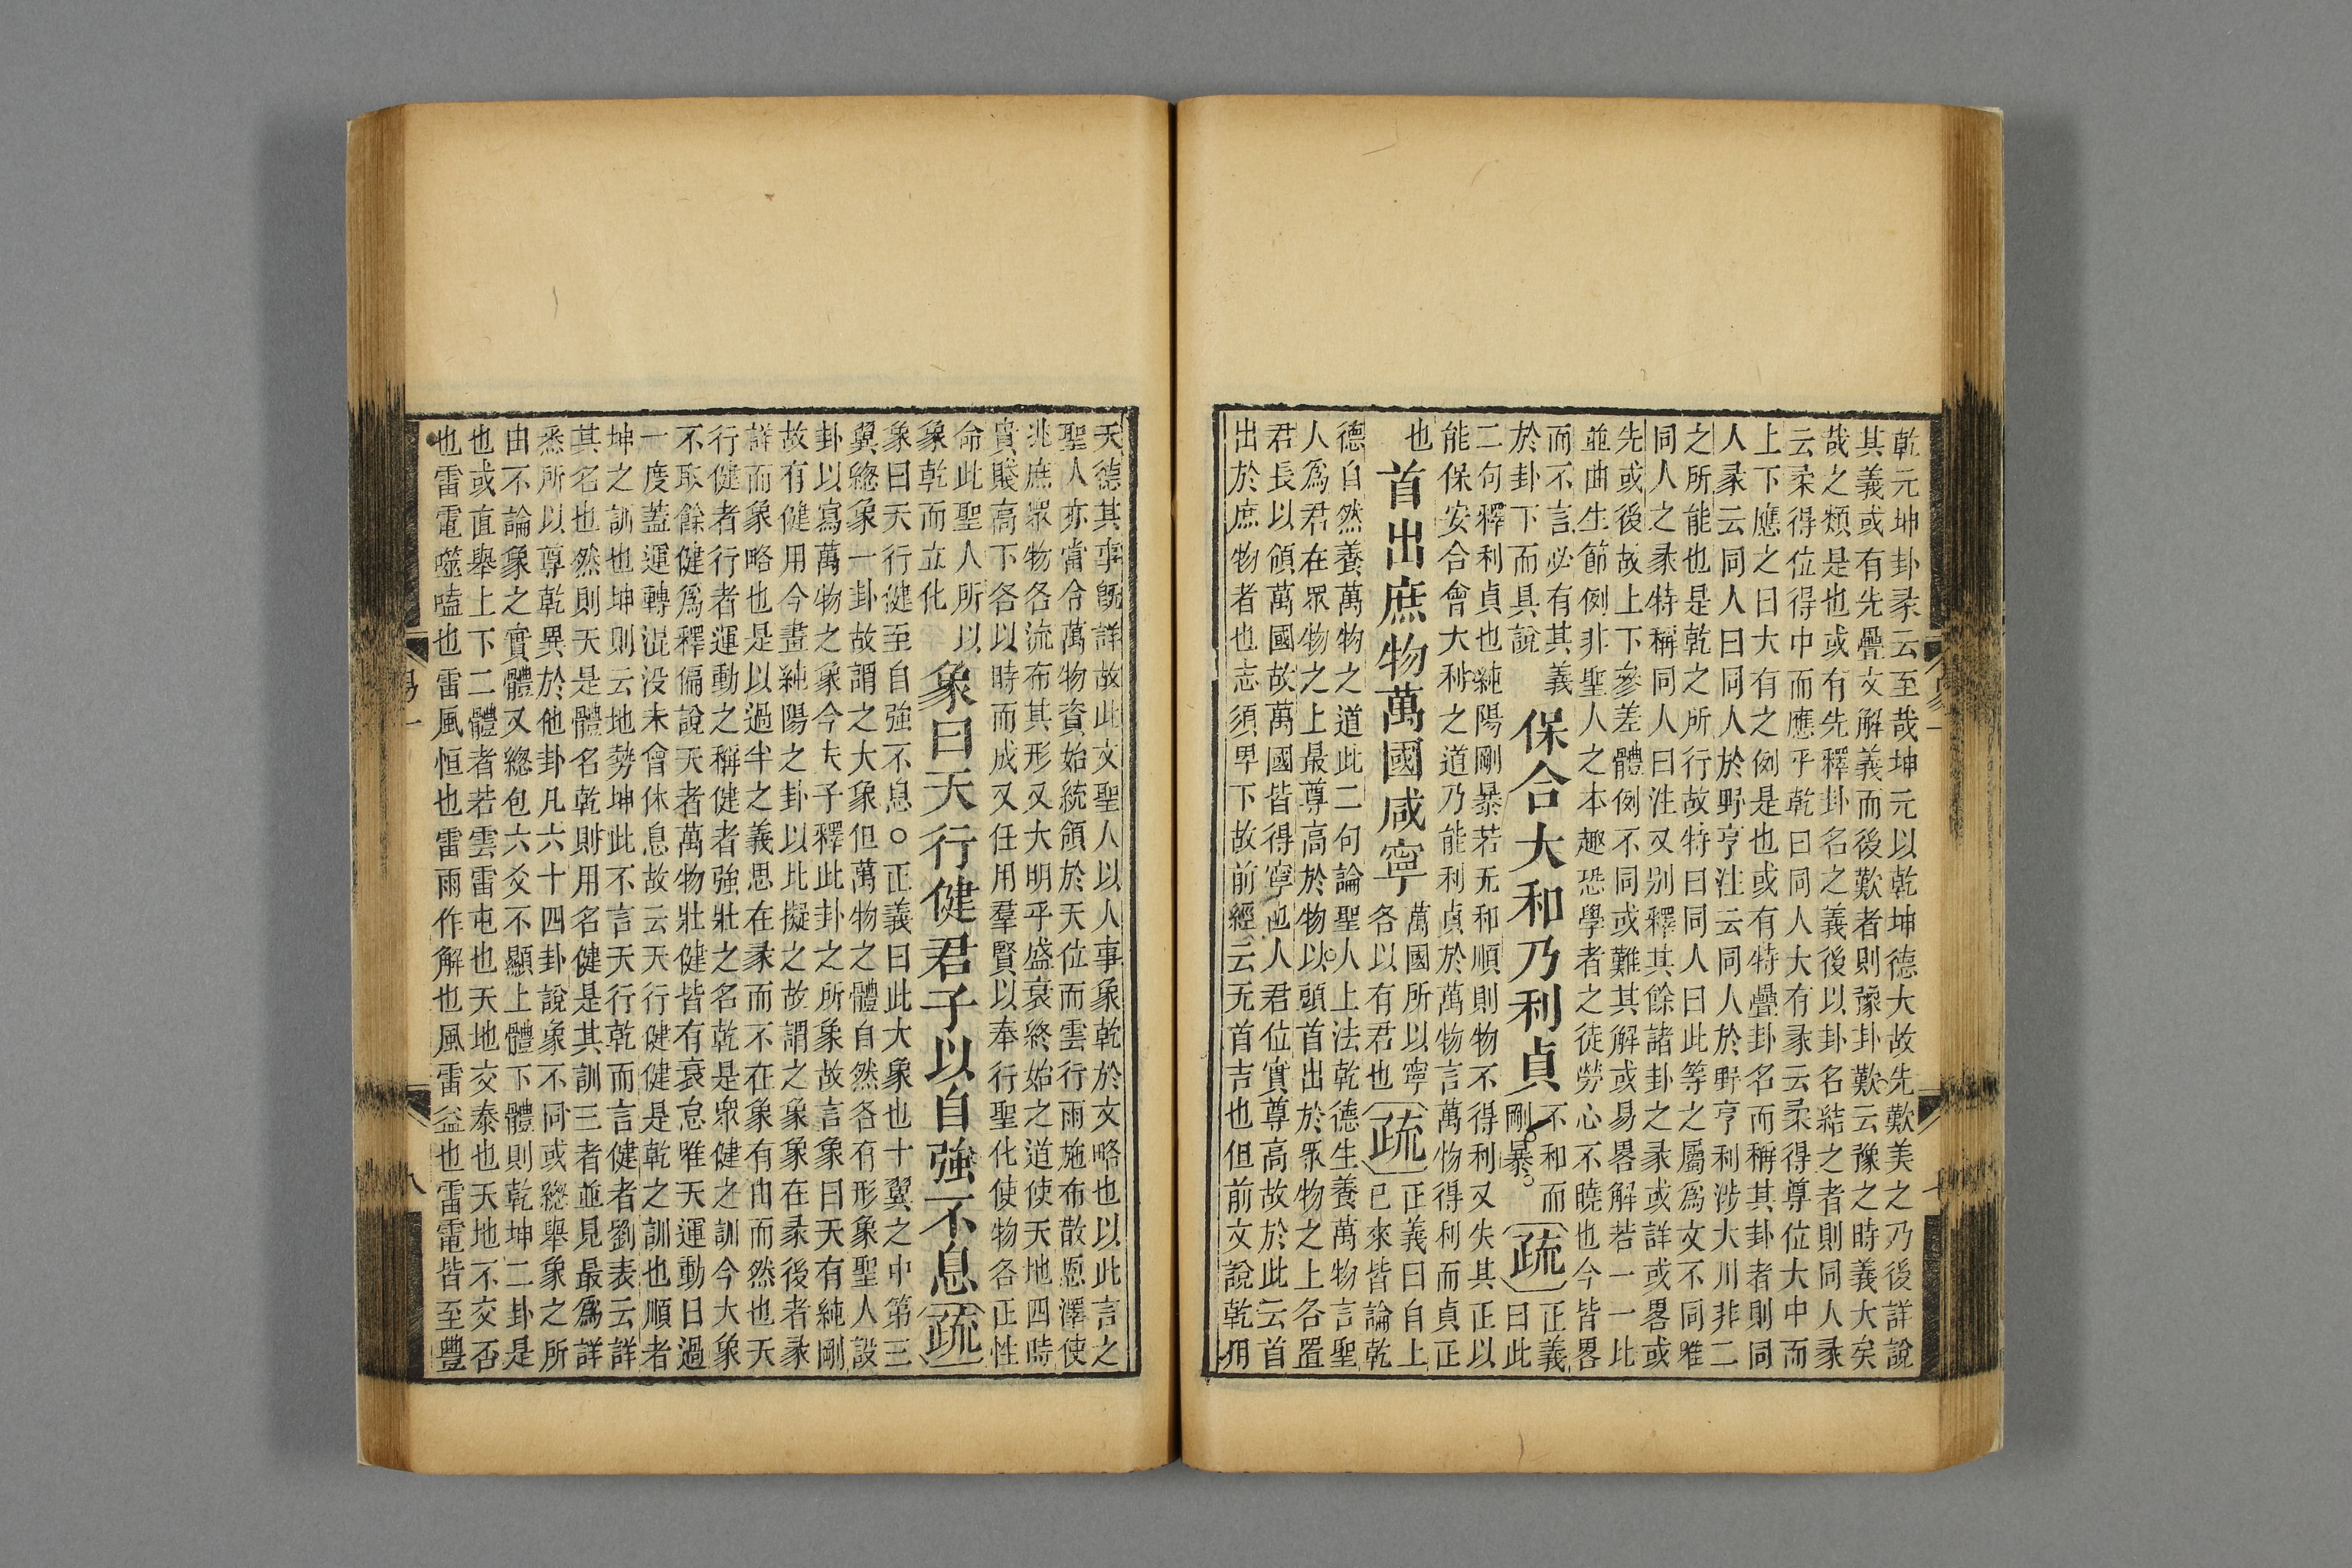 乾元坤卦彖云至哉坤元以乾坤德大故先歎美之乃後詳說
其義或有先疊文解義而後歎者則豫卦歎云豫之時義大矣
哉之類是也或有先釋卦名之義後以卦名結之者則同人彖
云柔得位得中而應乎乾曰同人大有彖云柔得尊位大中而
上下應之曰大有之例是也或有特疊卦名而稱其卦者則同
人彖云同人曰同人於野亨注云同人於野亨利涉大川非二
之所能也是乾之所行故特曰同人曰此等之屬爲文不同唯
同人之彖特稱同人曰注又别釋其餘諸卦之彖或詳或畧或
先或後故上下參差體例不同或難其解或易畧解若一一比
並曲生節例非聖人之本趣恐學者之徒勞心不曉也今皆畧
而不言必有其義
於卦下而具說
保合大和乃利貞
不和而
剛暴
疏
正義
曰此
二句釋利貞也純陽剛暴若无和順則物不得利又失其正以
能保安合會大利之道乃能利貞於萬物言萬物得利而貞正
也
首出庶物萬國咸寧
萬國所以寧
各以有君也
疏
正義曰自上
已來皆論乾
德自然養萬物之道此二句論聖人上法乾德生養萬物言聖
人爲君在眾物之上最尊高於物以頭首出於眾物之上各置
君長以領萬國故萬國皆得寧也人君位實尊高故於此云首
出於庶物者也志須卑下故前經云无首吉也但前文說乾用
天德其事旣詳故此文聖人以人事象乾於文略也以此言之
聖人亦當令萬物資始統領於天位而雲行雨施布散恩澤使
兆庶眾物各流布其形又大明乎盛衰終始之道使天地四時
貴賤高下各以時而成又任用羣賢以奉行聖化使物各正性
命此聖人所以
象乾而立化
象曰天行健君子以自強不息
疏
象曰天行健至自強不息○正義曰此大象也十翼之中第三
翼總象一卦故謂之大象但萬物之體自然各有形象聖人設
卦以寫萬物之象今夫子釋此卦之所象故言象曰天有純剛
故有健用今畫純陽之卦以比擬之故謂之象象在彖後者彖
詳而象略也是以過半之義思在彖而不在象有由而然也天
行健者行者運動之稱健者強壯之名乾是眾健之訓今大象
不取餘健爲釋偏說天者萬物壯健皆有衰怠唯天運動日過
一度蓋運轉混没未曾休息故云天行健健是乾之訓也順者
坤之訓也坤則云地勢坤此不言天行乾而言健者劉表云詳
其名也然則天是體名乾則用名健是其訓三者並見最爲詳
悉所以尊乾異於他卦凡六十四卦說象不同或總舉象之所
由不論象之實體又總包六爻不顯上體下體則乾坤二卦是
也或直舉上下二體者若雲雷屯也天地交泰也天地不交否
也雷電噬嗑也雷風恒也雷雨作解也風雷益也雷電皆至豐